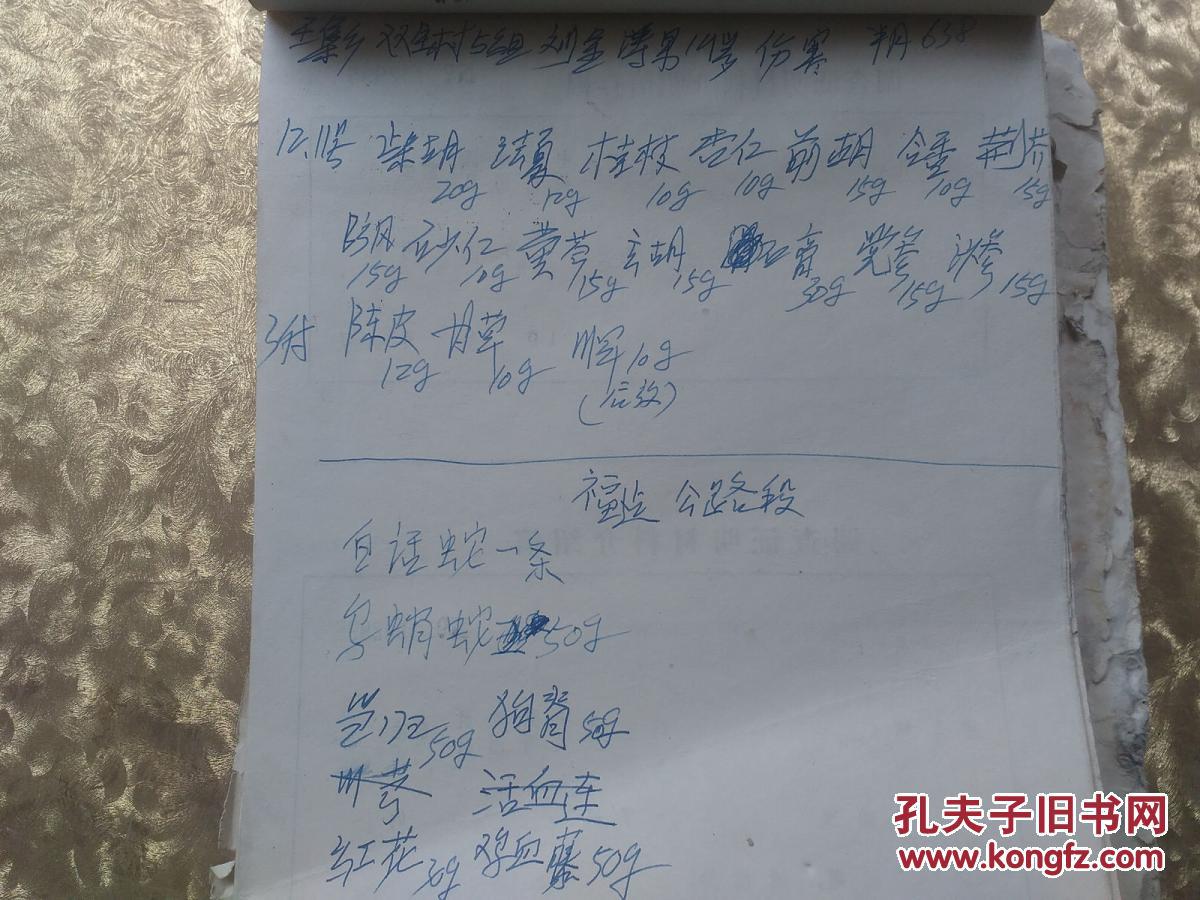 双金村5组 刘金 男14岁 伤寒 半月 638
12.11号 柴胡20g 法夏12g 桂枝10g 杏仁10g 前胡15g 10g 荆芥15g
防风15g 砂仁10g 黄芩15g 玄胡15g 石膏30g 党参15g 沙参15g
3付 陈皮12g 甘草10g 10g
(后放)
公路段
白活蛇一条
乌蛸蛇50g
50g 狗脊50g
川芎 活血连
红花30g 鸡血藤50g
孔夫子旧书网
www.kongfz.com